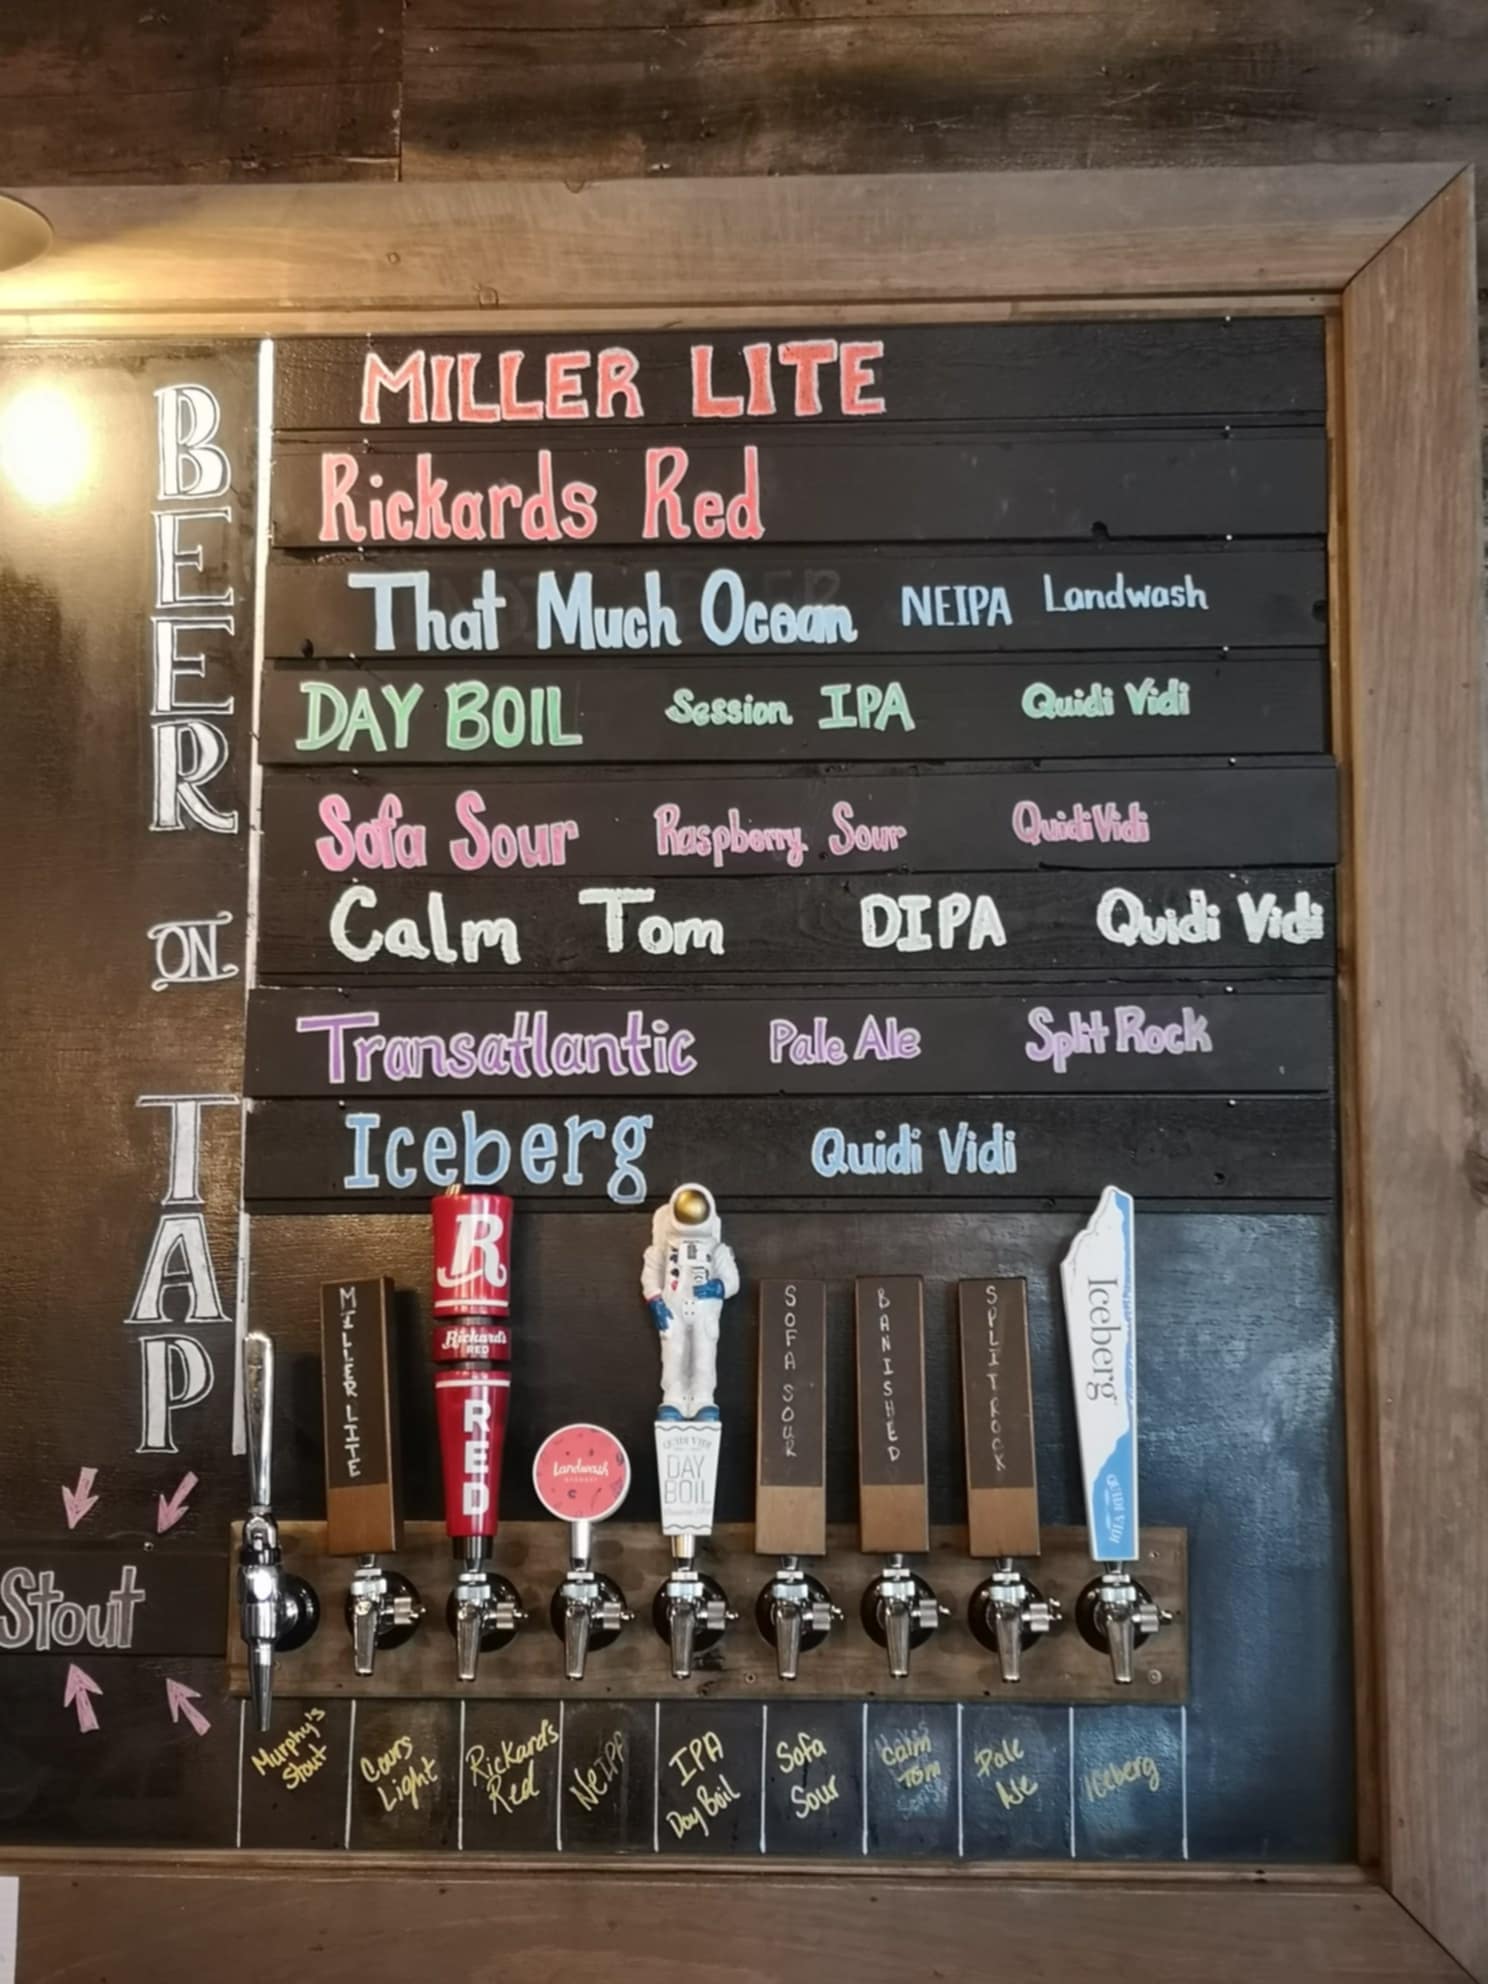 BEER ON TAP
MILLER LITE
Rickards Red
That Much Ocean NEIPA Landwash
DAY BOIL Session IPA Quidi Vidi
Sofa Sour Raspberry Sour Quidi Vidi
Calm Tom DIPA Quidi Vidi
Transatlantic Pale Ale Split Rock
Iceberg Quidi Vidi
Stout
MILLER LITE
R
Rickard's
RED
RED
Landwash
QUIDI VIDI
DAY
BOIL
SOFA SOUR
BANISHED
SPLIT ROCK
Iceberg
QUIDI VIDI
Murphy's
Stout
Cours
Light
Rickards
Red
NEIPA
IPA
Day Boil
Sofa
Sour
Calm
Tom
Pale
Ale
Iceberg